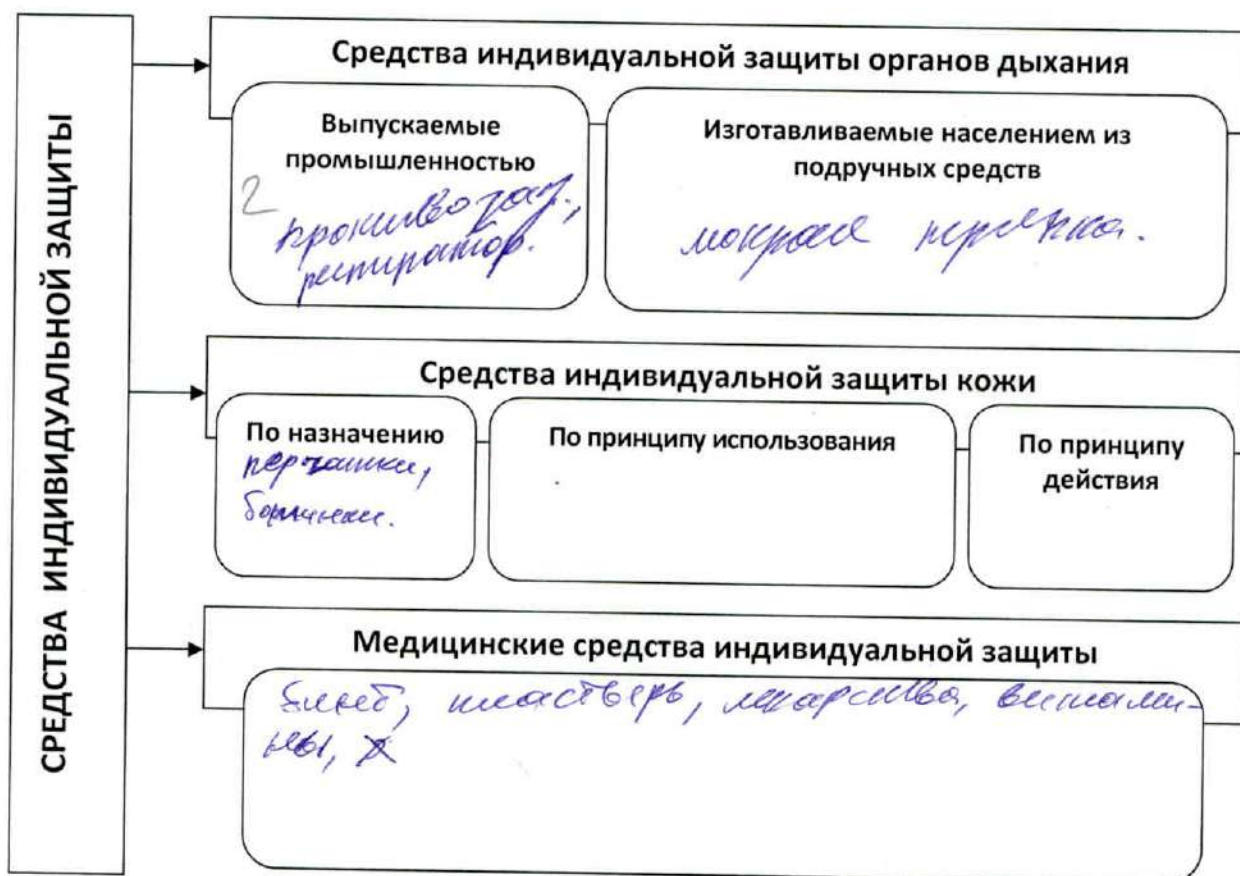 СРЕДСТВА ИНДИВИДУАЛЬНОЙ ЗАЩИТЫ
Средства индивидуальной защиты органов дыхания
Выпускаемые
промышленностью
2
противогаз,
респиратор.
Изготавливаемые населением из
подручных средств
мокрая
Средства индивидуальной защиты кожи
По назначению
перчатки,
ботинки.
По принципу использования
По принципу
действия
Медицинские средства индивидуальной защиты
бинт, пластырь, лекарства, витами-
ны,